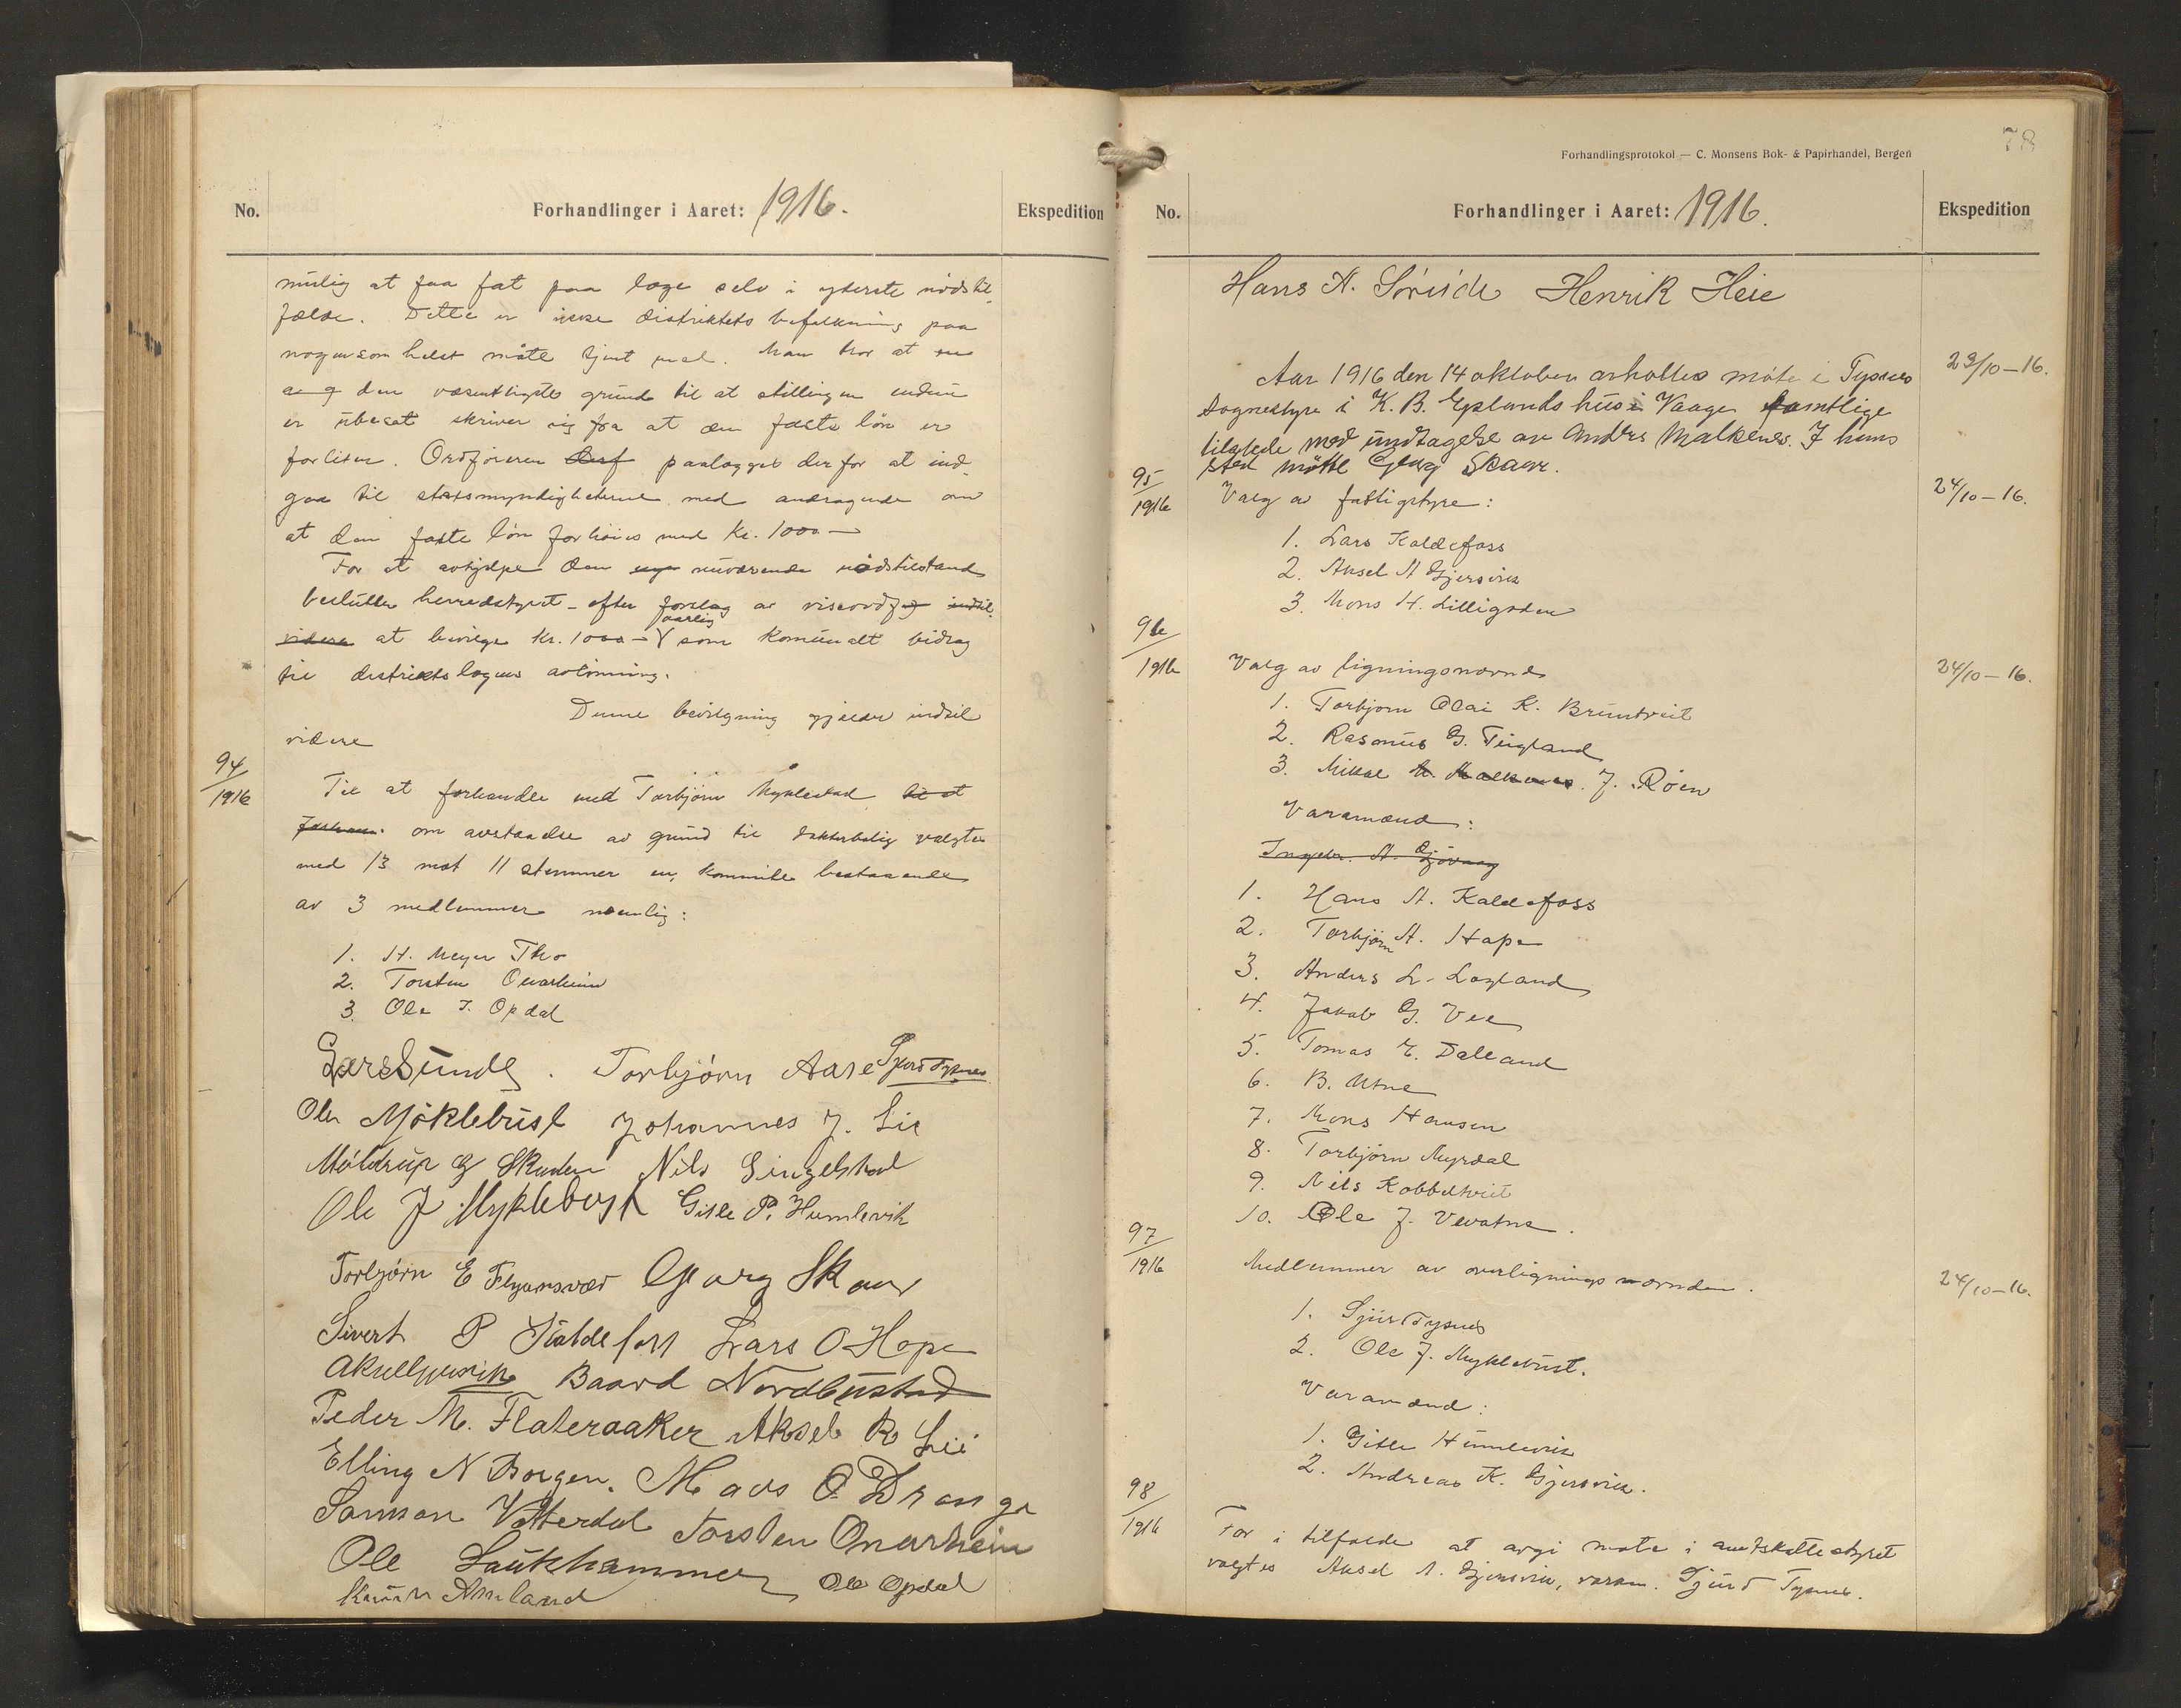 No.
Forhandlinger i Aaret: 1916.
Ekspedition
mulig at faa fat paa læge selv i yderste nødstil-
fælde. Dette er ikke distriktets befolkning paa
nogensomhelst måte tjent med. Man tror at en
den væsentligste grund til at stillingen endnu
er ubesat skriver sig fra at den faste løn er
for liten. Ordføreren paalægges derfor at ind-
gaa til statsmyndigheterne med andragende om
at den faste løn forhøies med Kr. 1000.—
For at avhjelpe den nuværende nødstilstand
beslutter herredstyret – efter forslag av viseordf.
at bevilge Kr. 1000.— aarlig som komunalt bidrag
til distriktslægens avlønning.
Denne bevilgning gjælder indtil
videre
94/1916
Til at forhandle med Torbjørn Myklestad til at
om avstaaelse av grund til doktorbolig valgtes
med 13 mot 11 stemmer en komite bestaaende
av 3 medlemmer nemlig:
1. H. Meyer Tho
2. Torsten Onarheim
3. Ole J. Opdal
Lars Sunde. Torbjørn Aase Sjurd Tysnes
Ole Möklebust Johannes J. Lie
Möldrup G Skaden Nils Singelstad
Ole J Myklebust Gisle P. Humlevik
Torbjørn E Flygansvær Georg Skaar
Sivert P Kaldefoss Lars O Hope
Aksel Gjersvik Baard Nordbustad
Peder M. Flateraaker Aksel R Lie
Elling N Borgen. Mads O Drange
Samson Vatterdal Torsten Onarheim
Ole Laukhammer Ole Opdal
Amland
78
Forhandlingsprotokol — C. Monsens Bok- & Papirhandel, Bergen
No.
Forhandlinger i Aaret: 1916.
Ekspedition
Hans A. Söreide Henrik Heie
Aar 1916 den 14 oktober avholdtes møte i Tysnes 23/10–16.
sognestyre i K. B. Epland's hus i Vaage samtlige
tilstede med undtagelse av Anders Malkenes. I hans
sted møtte Georg Skaar.
95/1916 Valg av fattigstyre: 24/10–16.
1. Lars Kaldefoss
2. Aksel A Gjersvik
3. Mons H. Lilligraven
96/1916 Valg av ligningsnævnd 24/10–16.
1. Torbjørn Olai K. Bruntveit
2. Rasmus G. Teigland
3. Mikal M. Malkenes. J. Røen
Varamænd:
1. Hans A. Kaldefoss
2. Torbjørn A. Hope
3. Anders L. Løgland
4. Jakob G. Vee
5. Tomas E. Dalland
6. B. Utne
7. Mons Hansen
8. Torbjørn Myrdal
9. Nils Kobbeltveit
10. Ole J. Vevatne.
97/1916 Medlemmer av overligningsnævnden. 24/10–16.
1. Sjur Tysnes
2. Ole J. Myklebust.
Varamænd:
1. Gisle Humlevik
2. Andreas K. Gjersvik.
98/1916 For i tilfælde at avgi møte i amtskattestyret
valgtes Aksel A. Gjersvik, varam. Sjurd Tysnes.